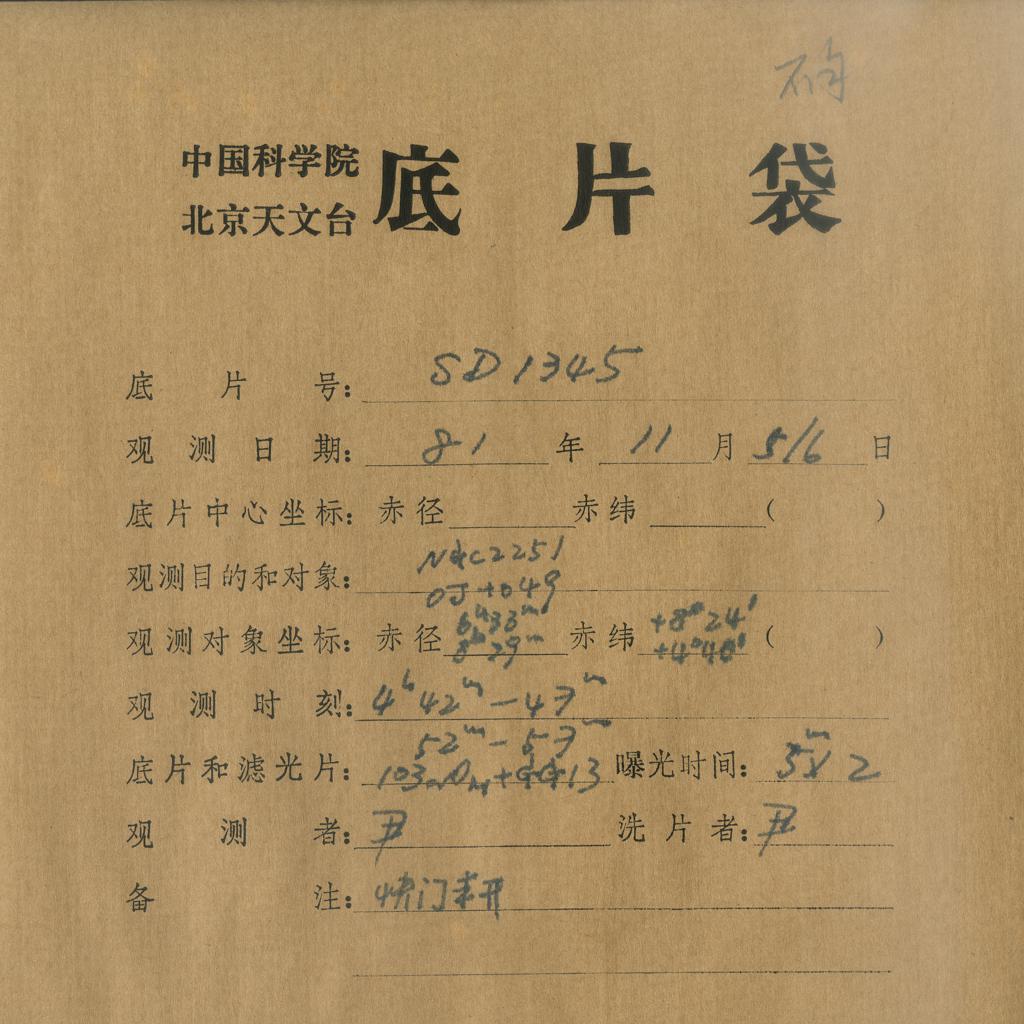 中国科学院
北京天文台
底片袋
底片号: SD1345
观测日期: 81年11月5/6日
底片中心坐标: 赤径 赤纬 ( )
NGC2251
观测目的和对象: OJ+049
6ʰ33ᵐ +8°24′
观测对象坐标: 赤径 8ʰ29ᵐ 赤纬 +4°40′ ( )
观测时刻: 4ʰ42ᵐ-47ᵐ
52ᵐ-57ᵐ
底片和滤光片: +GG13 曝光时间: 5ᵐx2
观测者: 尹 洗片者: 尹
备注: 快门未开